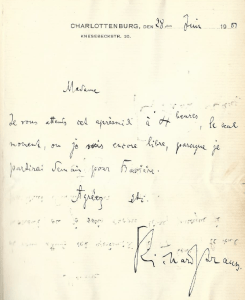 CHARLOTTENBURG, DEN 28 Juin 1907
KNESEBECKSTR. 30.
Madame
Je vous attends cet après-midi à 4 heures, le seul
moment, ou je suis encore libre, parceque je
partirai demain pour Bavière.
Agréez etc.
Richard Strauss